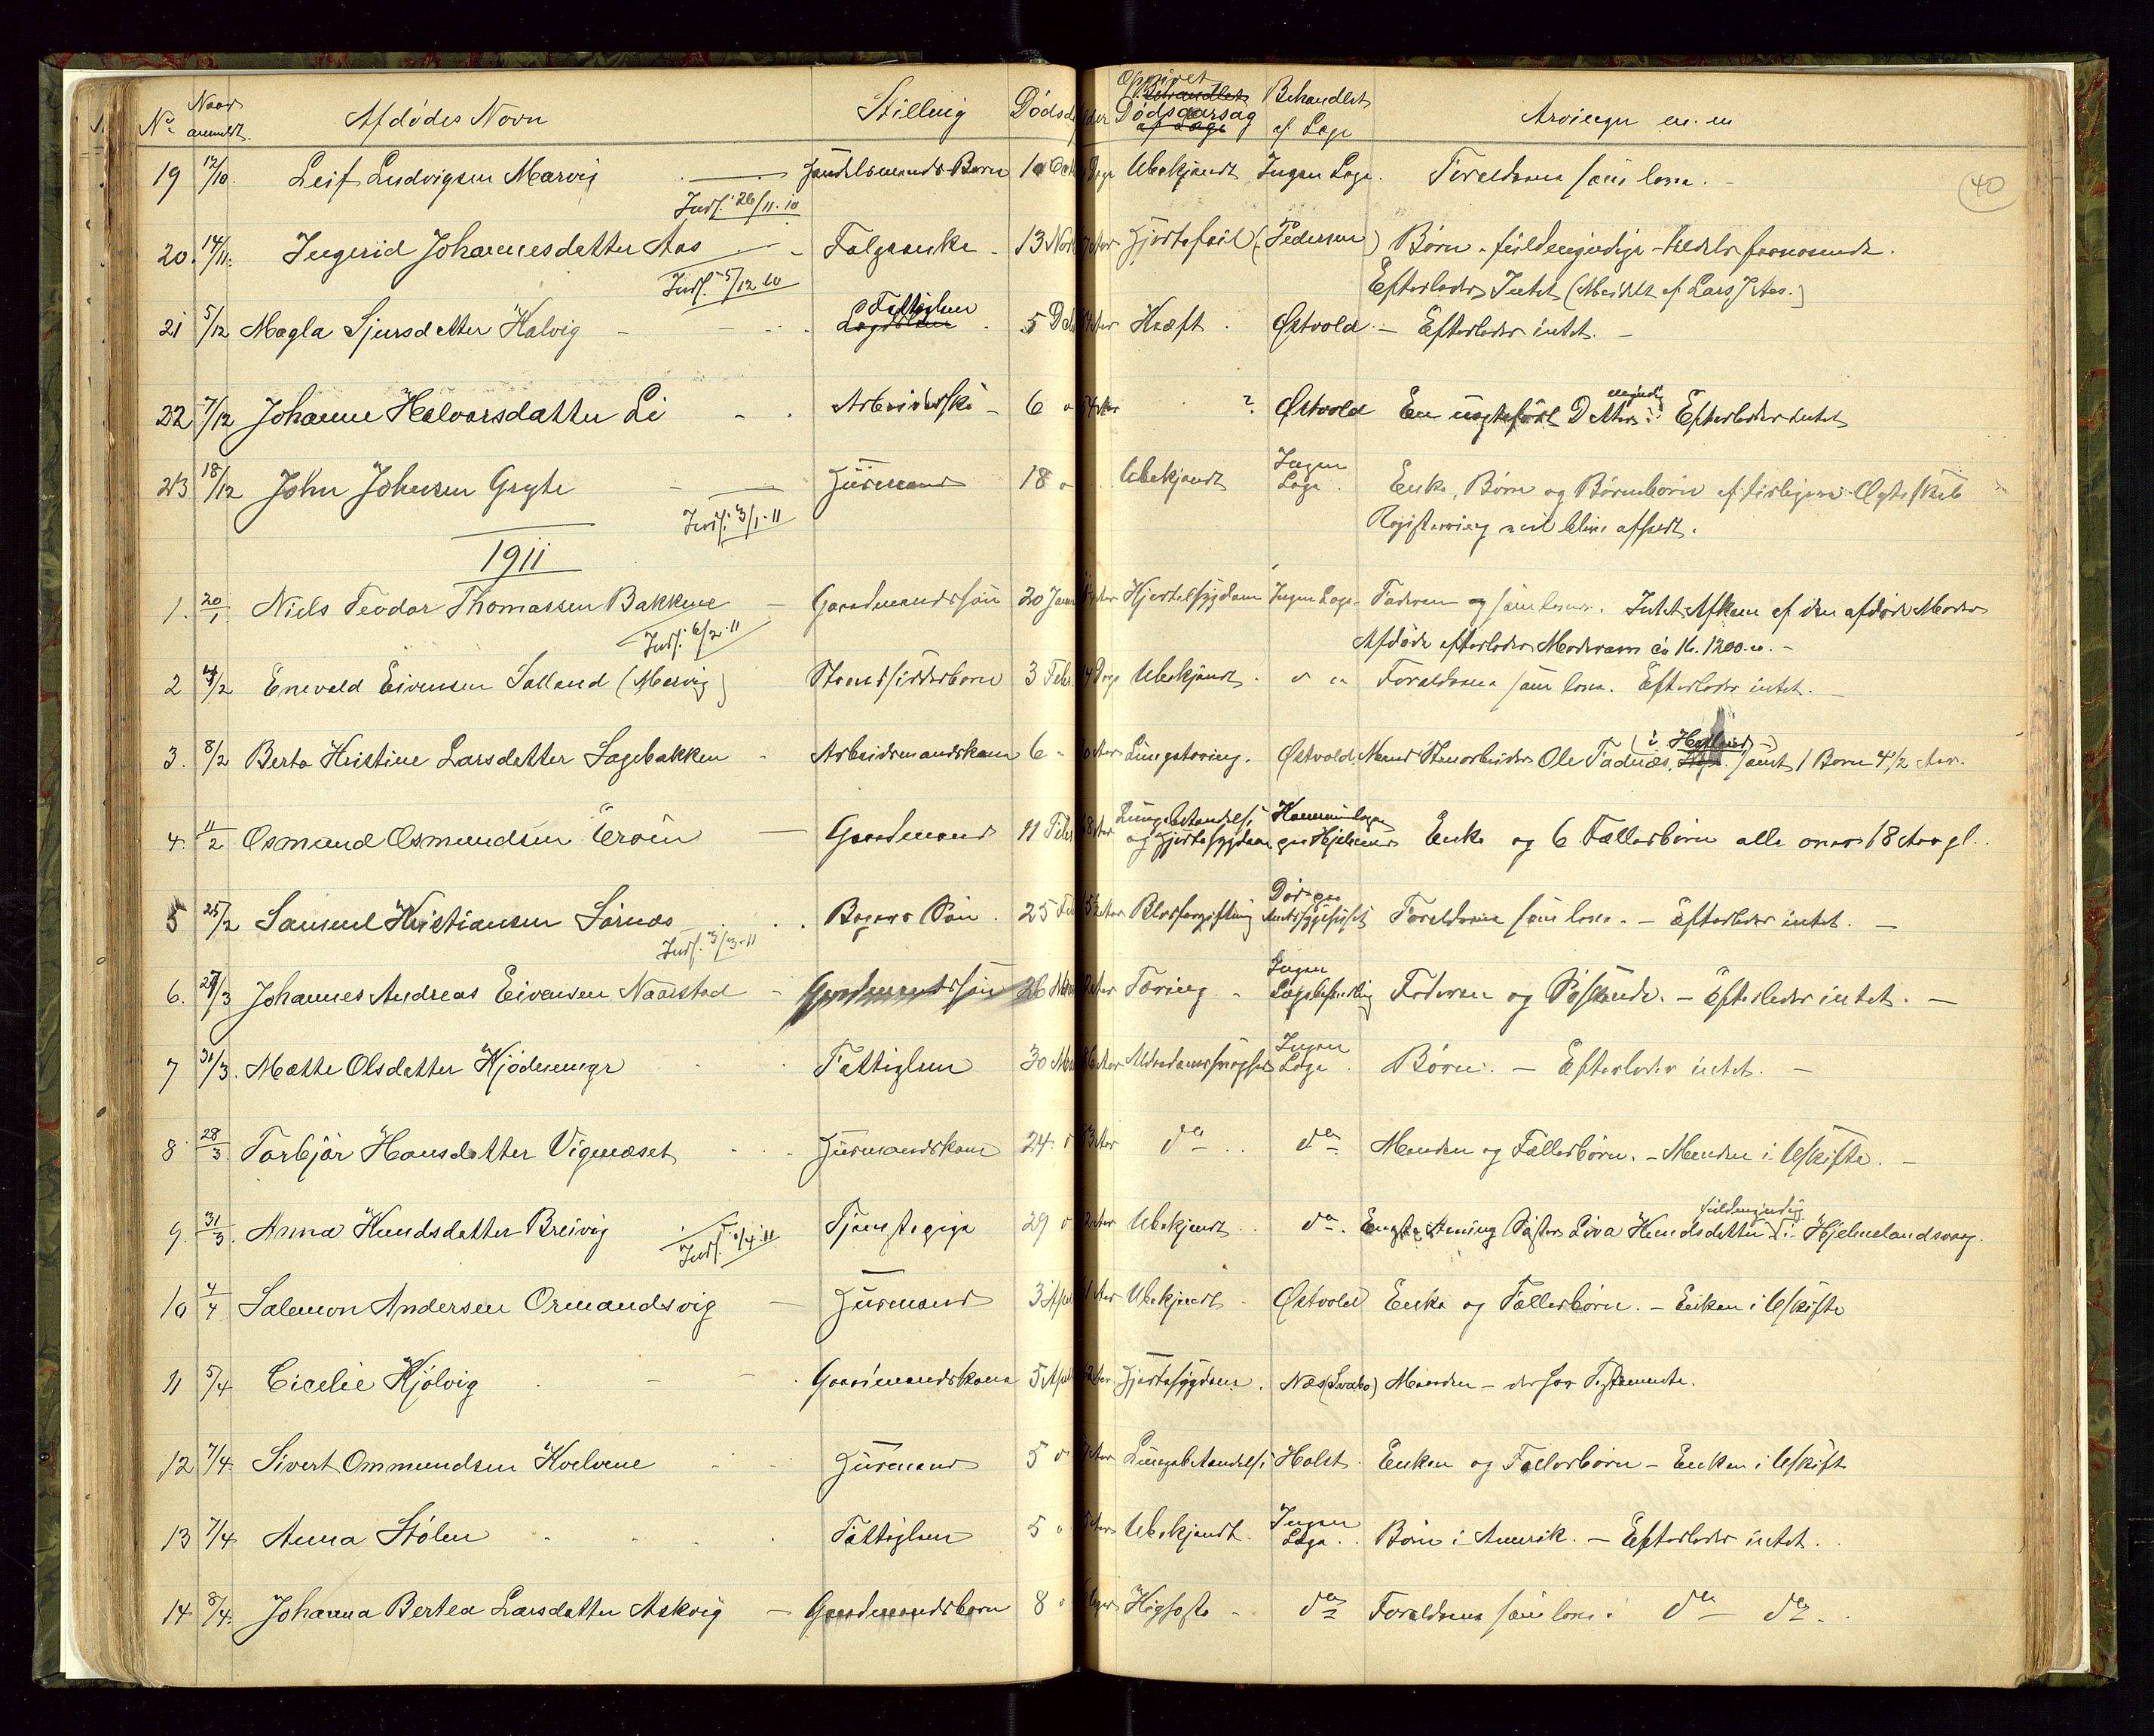 No Naar anmeldt. Afdødes Navn Stilling Dødsd Alder Opgivet Dødsaarsag Behandlet af Læge Arvinger m. m
40
19 12/10. Leif Ludvigsen Marvig — Handelsmands Barn 10 Oct Dage Ubekjendt Ingen Læge. Foreldrene som leve. -
Inds. 26/11-10
20. 14/11. Ingerid Johannesdatter Aas - Folgeenke - 13 Nov Hjertefeil (Pedersen) Børn - fuldmyndige - tildels fraværende.
Inds. 5/12 10 Efterlader Intet (Meddelt af Lars J Aas.)
21 5/12 Magla Sjursdatter Halvig - Fattiglem 5 De Kræft. Østvold - Efterlader intet. -
22 7/12 Johanne Halvorsdatter Li - Arbeiderske - 6 " 54 Aar ? Østvold En ugift Datter myndig Efterlader intet
23 18/12 John Johnsen Gryte — Husmand 18 " Ubekjendt Ingen Læge. Enke, Børn og Børnebørn af tidligere Ægteskab
Inds. 3/1-11 Registrering vil blive afholdt.
1911
1. 20/1 Niels Teodor Thomassen Bakkene - Gaardmandssøn 20 Jan Hjertesygdom Ingen Læge. Faderen og som lever. Intet Afkom af den afdøde Moder
Inds. 6/2-11 Afdøde efterlader Modersarv ca Kr. 1200.00. -
2 4/2 Enevald Eivensen Salland (Marvig) Strandsidderbarn 3 Feb. Dage Ubekjendt. " " Foreldrene som leve. Efterlader intet. -
3. 8/2 Berta Kristine Larsdatter Sagebakken - Arbeidsmandskone 6 - Aar Lungetæring. Østvold Mand Stenarbeider Ole Tadnæs, (i Høgland) samt 1 Barn 4 1/2 Aar.
4. 11/2 Osmund Osmundsen Ervin — Gaardmand 11 Feb Aar Lungebetændelse og Hjertesygdom Kommunelægen Hjelmeland Enke og 6 Fællesbørn alle over 18 Aar gl.
5 25/2 Samuel Kristiansen Sørnæs . . Bagers Søn. 25 Fe Aar Blodforgiftning Død paa Amtssygehuset Foreldrene som leve. - Efterlader intet. —
Inds. 3/3-11
6. 27/3 Johannes Andreas Eivensen Naarstad - Gaardmandssøn 26 Aar Tæring - Ingen Lægebehandling Faderen og Søskende. - Efterlader intet. —
7 31/3. Mætte Olsdatter Kjødeneger Fattiglem 30 Ma Aar Alderdomssvaghed Ingen Læge. Børn. - Efterlader intet. -
8 28/3. Torbjør Hansdatter Vigenæset . . . Husmandskone 24. " Aar do. . . do Manden og Fællesbørn. - Manden i Uskifte. -
9. 31/3. Anna Knudsdatter Breivig Tjenstepige 29 " Aar Ubekjendt . . do. Eneste Arving Søster Siva Knudsdatter fuldmyndig i Hjelmelandsvaag.
Inds. 1/4.11
10 4/4 Salemon Andersen Ormandsvig — Husmand 3 Apr Aar Ubekjendt - Østvold Enke og Fællesbørn. - Enken i Uskifte
11 5/4 Cicelie Kjølvig . - - . Gaardmandskone 5 Apr Aar Hjertesygdom. Næs (Svabo) Manden - der har Testamente.
12 7/4. Sivert Ommundsen Kvelvene . . Husmand 5 " Aar Lungebetændelse Holst. Enken og Fællesbørn - Enken i Uskifte
13 7/4. Anna Stølen . . . . Fattiglem 5 " Aar Ubekjendt. Ingen Læge. . Børn i Amerik. - Efterlader intet.
14 8/4. Johanna Bertea Larsdatter Askvig — Gaardmandsbarn 8 " Kighoste - do Foreldrene som leve. do do.